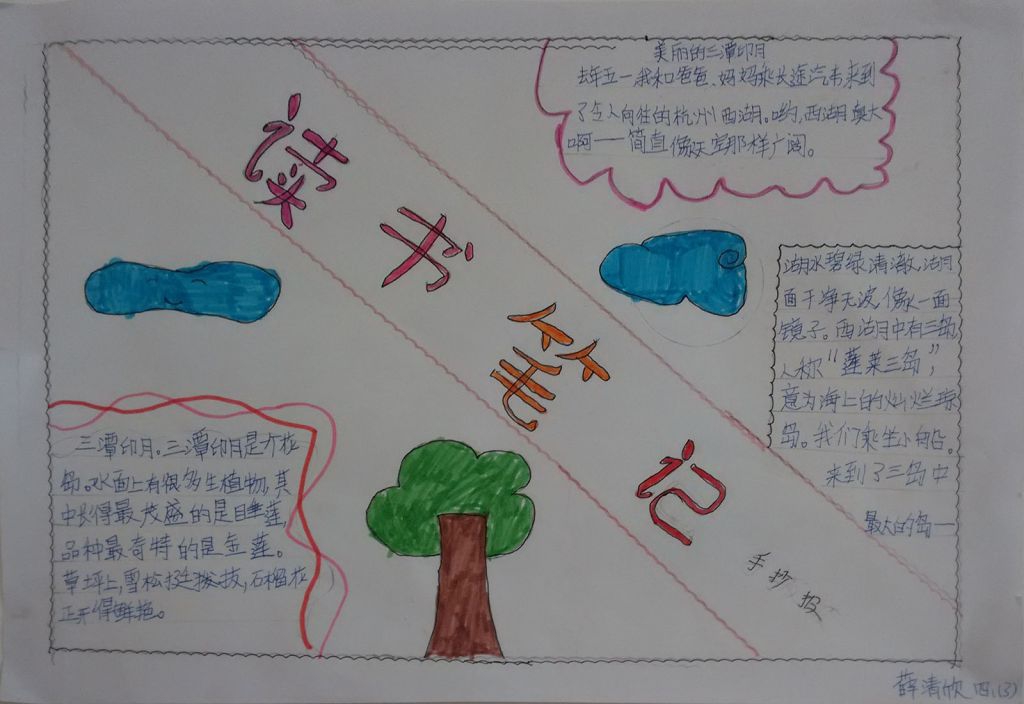 读书笔记
手抄报
美丽的三潭印月
去年五一我和爸爸、妈妈乘长途汽车来到
了令人向往的杭州西湖。哟,西湖真大
啊——简直像天空那样广阔。
湖水碧绿清澈,湖
面干净无波,像一面
镜子。西湖中有三岛
人称“蓬莱三岛”,
意为海上的灿烂琼
岛。我们乘坐小船。
来到了三岛中
最大的岛—
三潭印月。三潭印月是个花
岛。水面上有很多生植物,其
中长得最茂盛的是睡莲,
品种最奇特的是金莲。
草坪上,雪松挺拔,石榴花
正开得鲜艳。
薛清欣 四.(3)